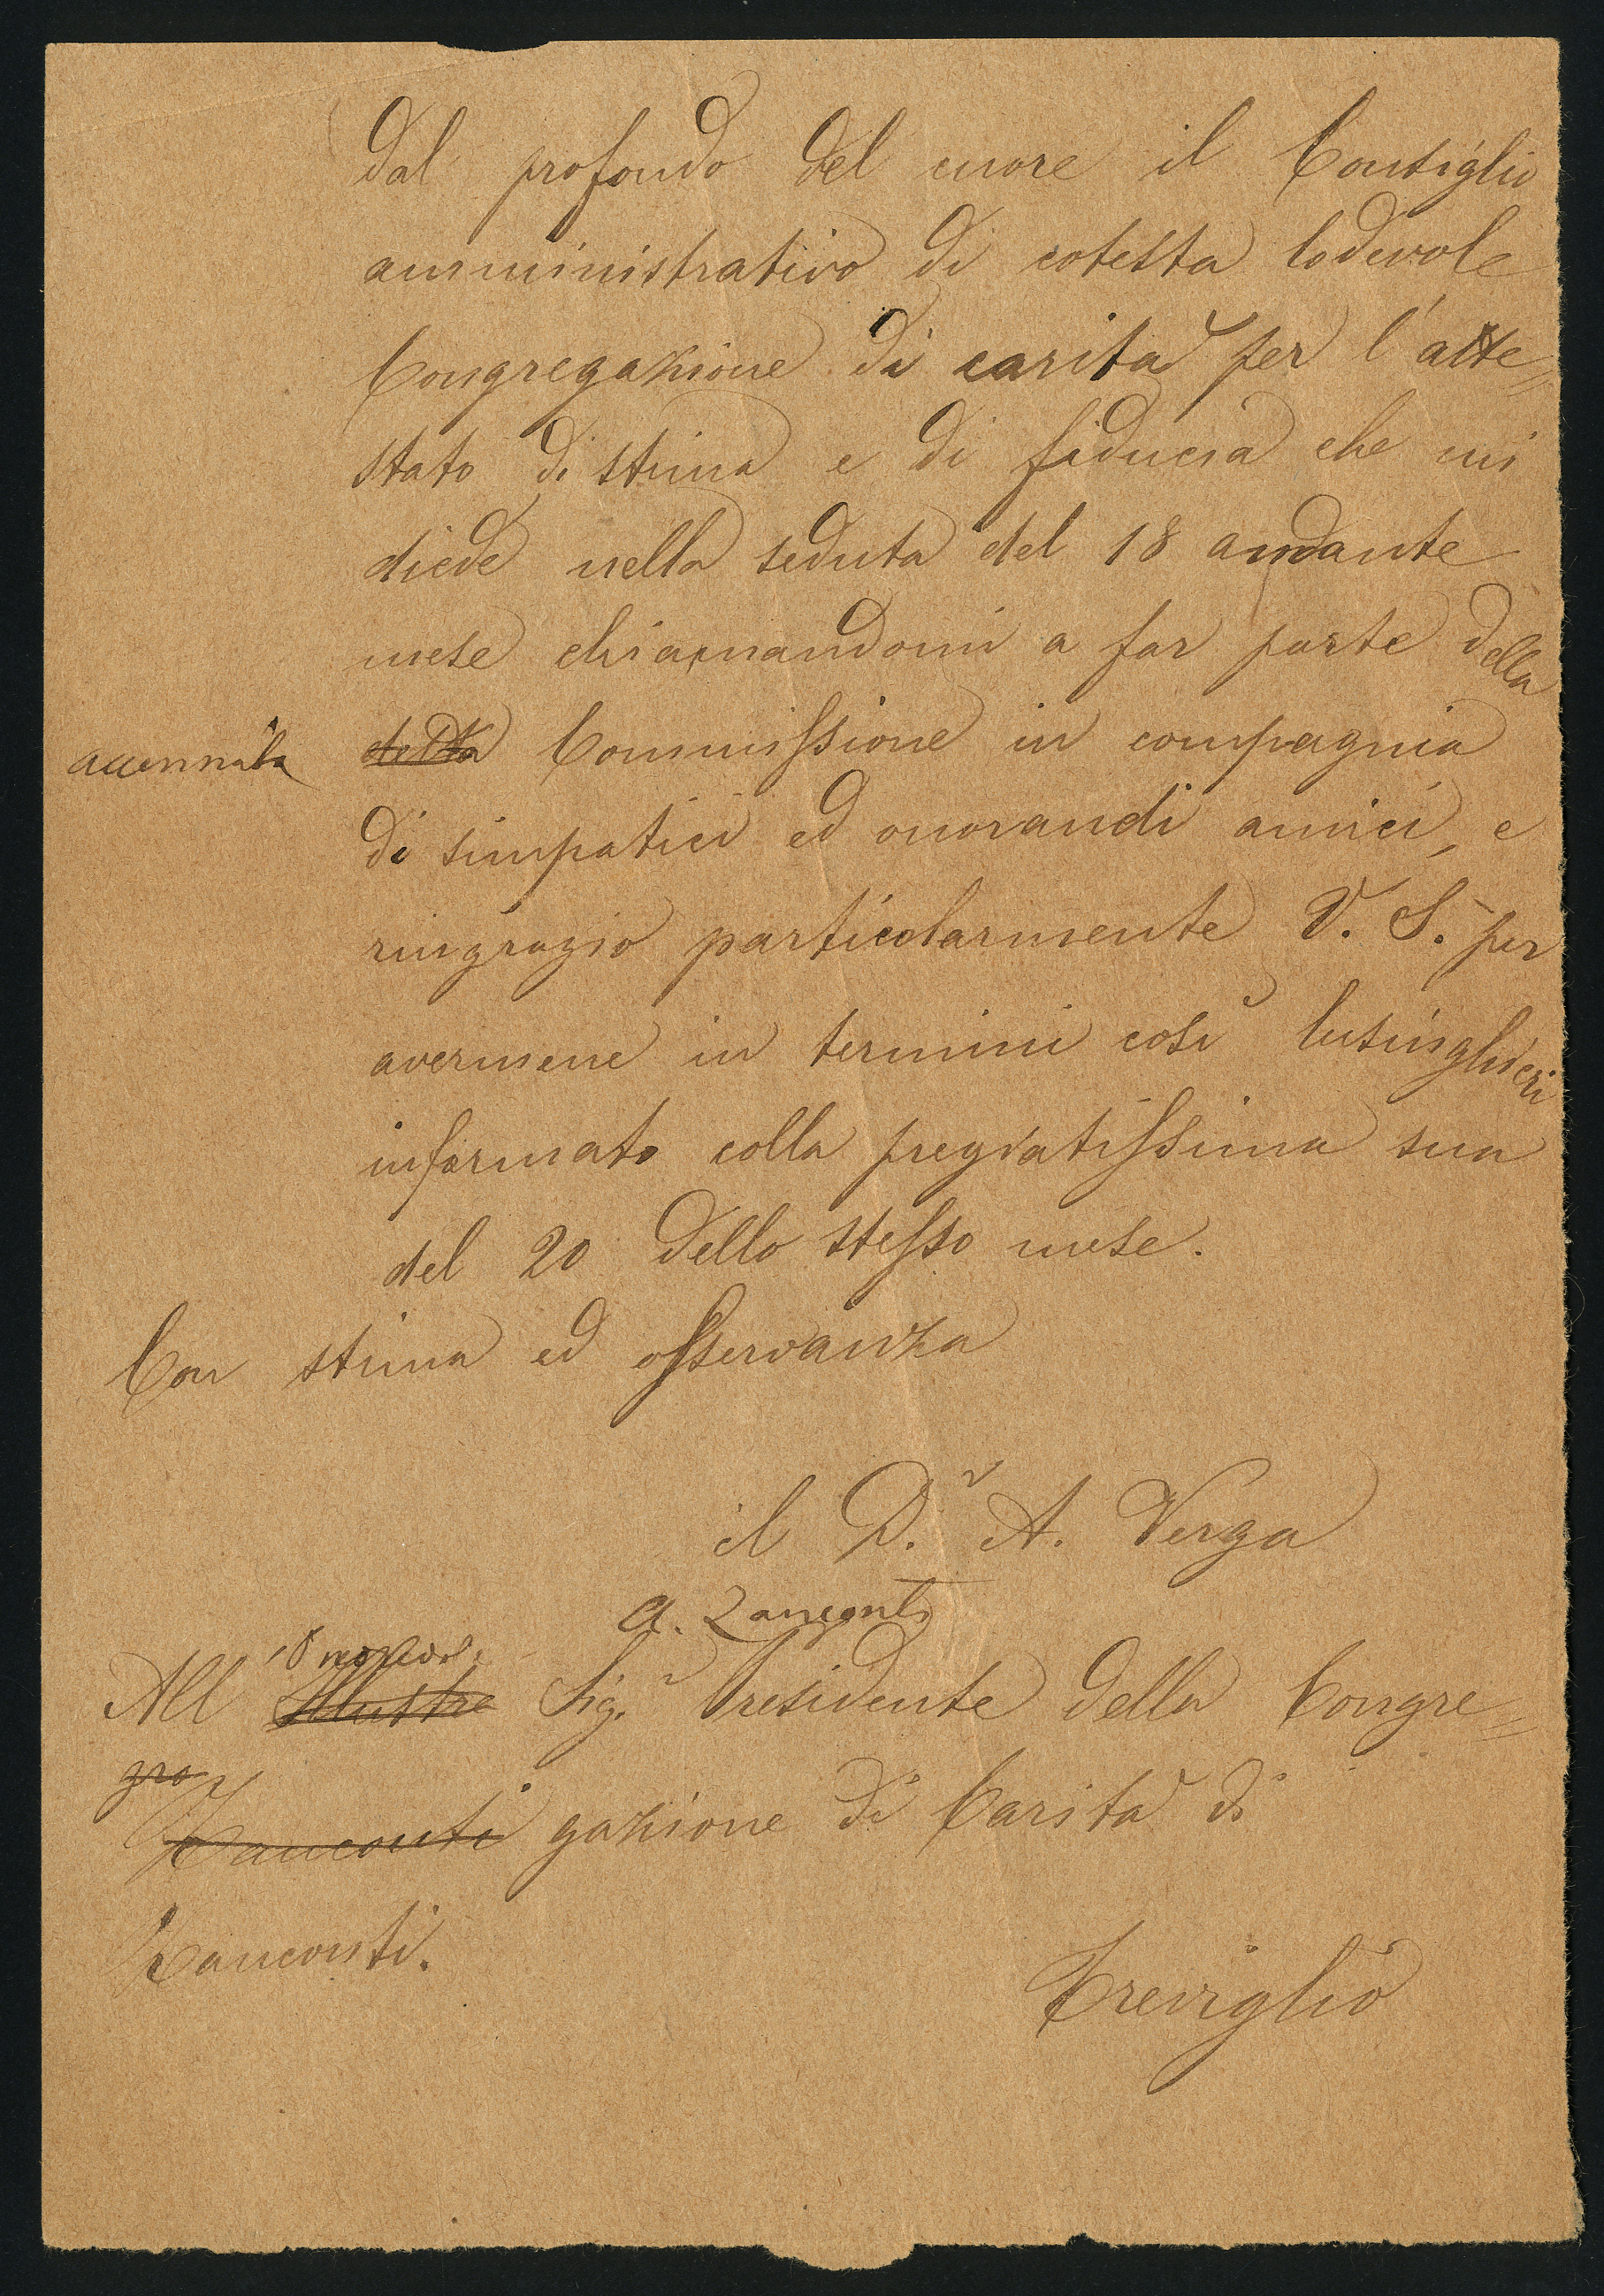 dal profondo del cuore il Consiglio
amministrativo di cotesta lodevole
Congregazione di carità per l'atte=
stato di stima e di fiducia che mi
diede nella seduta del 18 andante
mese chiamandomi a far parte della
accennata detta Commissione in compagnia
di simpatici ed onorandi amici, e
ringrazio particolarmente V. S. per
avermene in termini così lusinghieri
informato colla pregiatissima sua
del 20 dello stesso mese.
Con stima ed osservanza
il D.r A. Verga
a. Zanconti
All Illustre Sig.r Presidente della Congre=
gra
Zanconti gazione di Carità di
Zanconti.
Treviglio